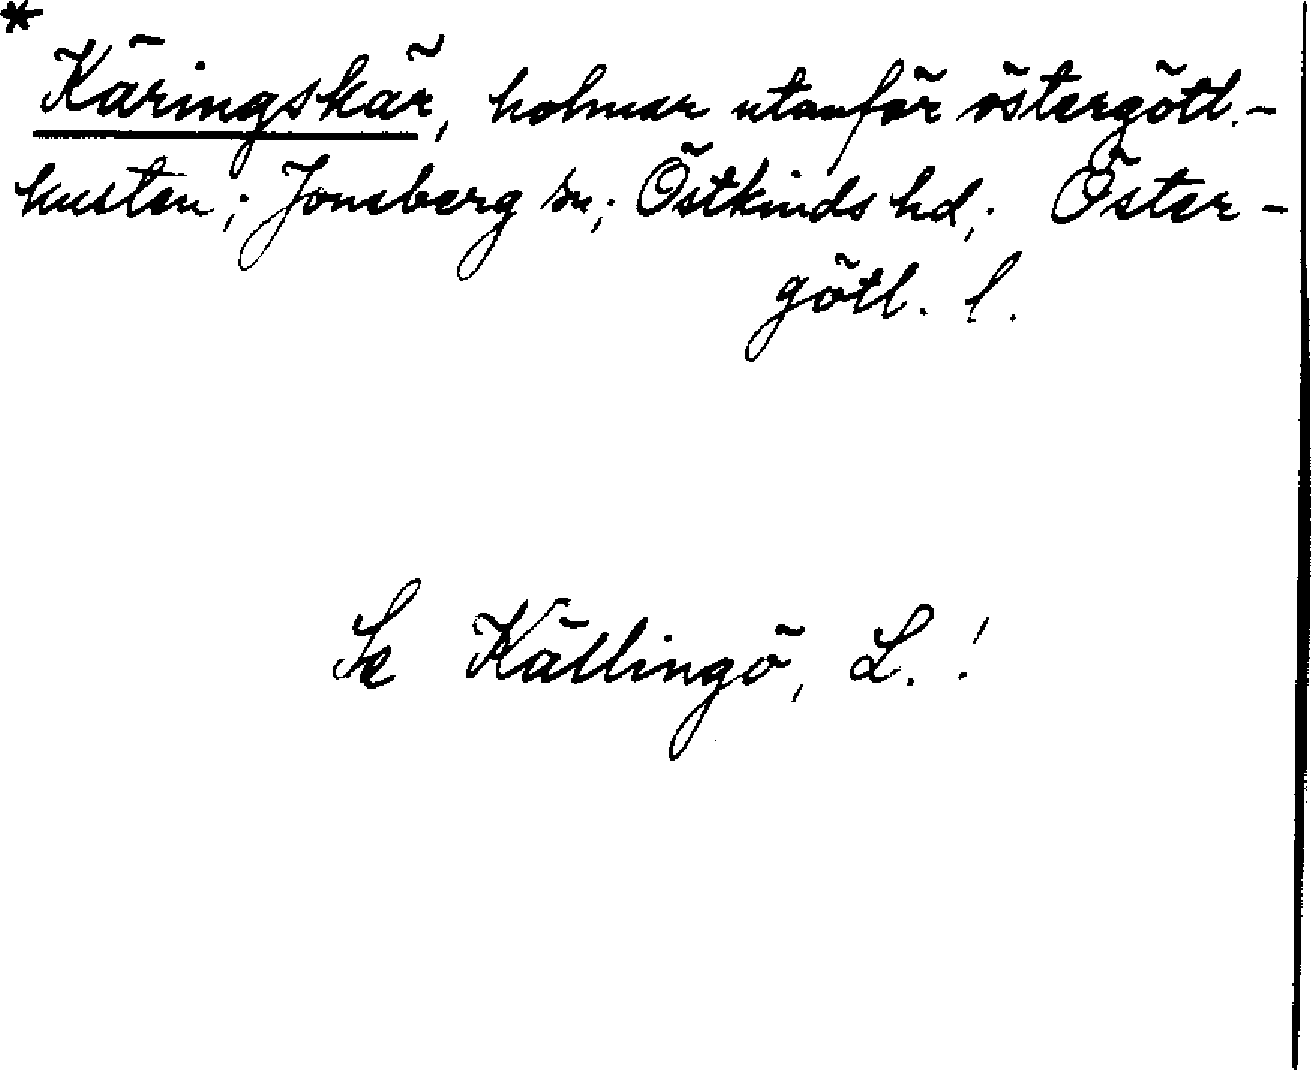 *
Käringskär, holmar utanför östergötl.-
kusten; Jonsberg sn; Östkinds hd; Öster-
götl. l.
Se Källingö, L.!